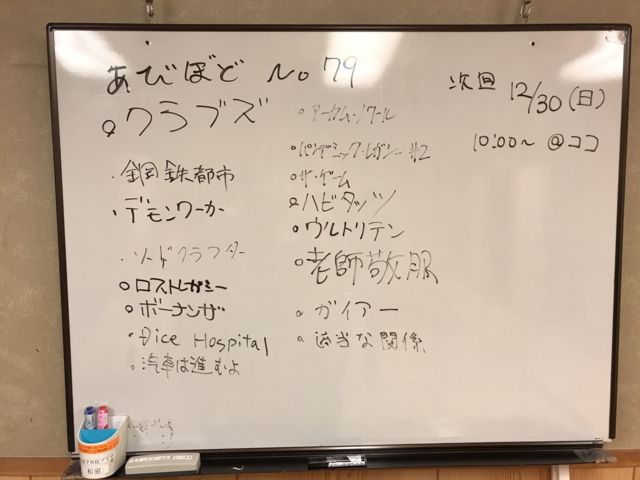 あびぼど No 79
次回 12/30(日)
10:00~ @ココ
○クラブズ
・鋼鉄都市
・デモンワーカー
・ソードクラフター
○ロストレガシー
○ボーナンザ
○Dice Hospital
○汽車は進むよ
○アーカム・ノワール
○パンデミック・レガシー #2
○ザ・ゲーム
○ハビタッツ
○ウルトリテン
○老師敬服
○ガイアー
○適当な関係
和室